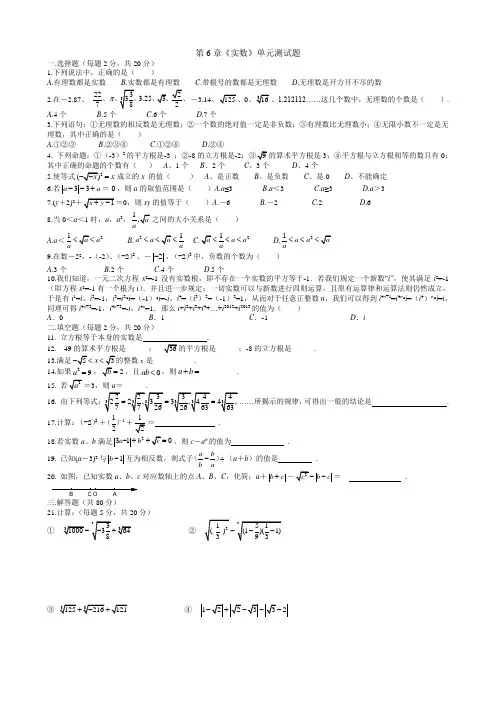 第 6 章《实数》单元测试题
一.选择题（每题 2 分，共 20 分）
1.下列说法中，正确的是（ ）
A.有理数都是实数 B.实数都是有理数 C.带根号的数都是无理数 D.无理数是开方开不尽的数
2.在－2.87、22/7、π、3.25、√2/2、－3.14、0、1.212112……这几个数中，无理数的个数是（ ）.
A.4 个 B.5 个 C.6 个 D.7 个
3.下列语句：①无理数的相反数是无理数；②一个数的绝对值一定是非负数；③有理数比无理数小；④无限小数不一定是无
理数，其中正确的是（ ）
A.①②③ B.②③④ C.①②④ D.②④
4. 下列命题：①（-3）²的平方根是-3 ；②-8的立方根是-2；③的算术平方根是 3；④平方根与立方根相等的数只有 0；
其中正确的命题的个数有（ ） A、1 个 B、2 个 C、3 个 D、4 个
5.使等式(-√-x)² = x 成立的 x 的值（ ） A、是正数 B、是负数 C、是 0 D、不能确定
6.若 |a-3|-3+a = 0，则 a 的取值范围是（ ）A.a≤3 B.a＜3 C.a≥3 D.a＞3
7.(y＋2)²＋√x+y-1＝0，则 xy 的值等于（ ）A.－6 B.－2 C.2 D.6
8.当 0＜a＜1 时，a，a²，1/a,√a 之间的大小关系是（ ）
A.a＜1/a＜√a＜a² B.a²＜a＜√a＜1/a C.√a＜1/a＜a＜a² D.1/a＜a＜a²＜√a
9.在数－2²，-（-2）、（-2）²、－|-2|，(-2)³中，负数的个数为（ ）
A.3 个 B.2 个 C.4 个 D.5 个
10.我们知道，一元二次方程 x²=-1 没有实数根，即不存在一个实数的平方等于-1．若我们规定一个新数“i”，使其满足 i²=-1
（即方程 x²=-1 有一个根为 i）．并且进一步规定：一切实数可以与新数进行四则运算，且原有运算律和运算法则仍然成立，
同理可得
A．0 B．1 C．-1 D．i
二.填空题（每题 2 分，共 20 分）
11. 立方根等于本身的实数是 .
12. 49 的算术平方根是 ； √36的平方根是 ；-8 的立方根是 .
13.满足-√5＜x＜√3的整数 x 是 .
14.如果 a² = 9，√b = 2，且 ab＜0，则 a+b = .
15. 若√a² =3，则 a＝ .
16. 由下列等式：∛(2 2/7)=2∛(2/7), ∛(3 3/26)=3∛(3/26), ∛(4 4/63)=4∛(4/63), ……所揭示的规律，可得出一般的结论是 .
17.计算：(-2)²＋(1/2)⁻¹＋1/√2＝ .
18.若实数 a、b 满足＝0，则 c－aᵇ 的值为 .
19. 已知(a－3)²与|b-1|互为相反数，则式子(a/b - b/a)÷（a＋b）的值是 .
20. 如图，已知实数 a、b、c 对应数轴上的点 A、B、C，化简：a＋|b+c|－√c²-|b-c|＝ .
B C O A
三.解答题（共 80 分）
21.计算：(每题 5 分，共 20 分)
① ②
③ ∛125+∛-216+√121 ④ |1-√2|+|√2-√3|-|√3-2|